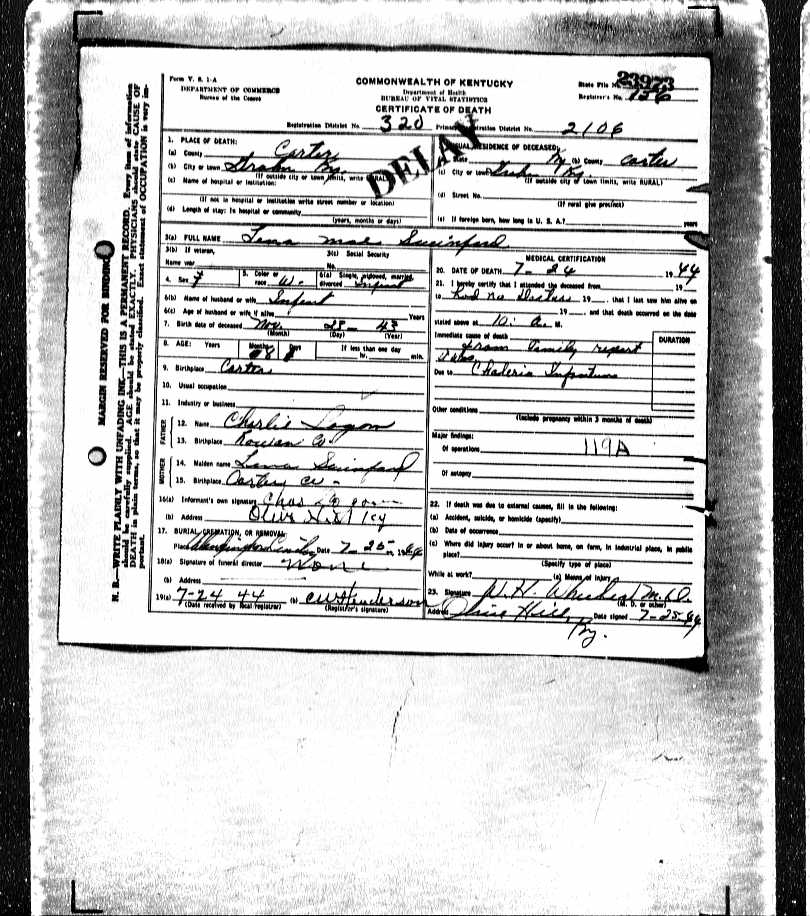 N. B.—WRITE PLAINLY WITH UNFADING INK—THIS IS A PERMANENT RECORD. Every item of information
should be carefully supplied. AGE should be stated EXACTLY. PHYSICIANS should state CAUSE OF
DEATH in plain terms, so that it may be properly classified. Exact statement of OCCUPATION is very im-
portant.
MARGIN RESERVED FOR BINDING
Form V. S. 1-A
DEPARTMENT OF COMMERCE
Bureau of the Census
COMMONWEALTH OF KENTUCKY
Department of Health
BUREAU OF VITAL STATISTICS
CERTIFICATE OF DEATH
State File No. 23973
Registrar's No. 126
Registration District No. 320 Primary Registration District No. 2106
DELAY
1. PLACE OF DEATH:
(a) County Carter
(b) City or town Grahn Ky.
(If outside city or town limits, write RURAL)
(c) Name of hospital or institution:
(If not in hospital or institution write street number or location)
(d) Length of stay: In hospital or community
(years, months or days)
USUAL RESIDENCE OF DECEASED:
State Ky (b) County Carter
(c) City or town Grahn Ky.
(If outside city or town limits, write RURAL)
(d) Street No.
(If rural give precinct)
(e) If foreign born, how long in U. S. A.? years
3(a) FULL NAME Lena Mae Swinford
3(b) If veteran,
Name war
3(c) Social Security
No.
4. Sex f
5. Color or
race W.
6(a) Single, widowed, married,
divorced Infant
6(b) Name of husband or wife Infant
6(c) Age of husband or wife if alive Years
7. Birth date of deceased Nov. 28 - 43
(Month) (Day) (Year)
8. AGE: Years Months Days If less than one day
8 hr. min.
9. Birthplace Carter
10. Usual occupation
11. Industry or business
FATHER
12. Name Charlie Logan
13. Birthplace Rowan Co
MOTHER
14. Maiden name Lena Swinford
15. Birthplace Carter Co -
16(a) Informant's own signature Chas Logan
(b) Address Olive Hill Ky
17. BURIAL, CREMATION, OR REMOVAL
Place Date 7-25-, 1944
18(a) Signature of funeral director None
(b) Address
19(a) 7-24 44 (b) CW Henderson
(Date received by local registrar) (Registrar's signature)
MEDICAL CERTIFICATION
20. DATE OF DEATH 7-24 1944
21. I hereby certify that I attended the deceased from 19
to Had no Doctor 19 that I last saw him alive on
19 and that death occurred on the date
stated above at 10: A. M.
Immediate cause of death DURATION
from family report
Due to
Other conditions
(Include pregnancy within 3 months of death)
Major findings:
Of operations 119A
Of autopsy
22. If death was due to external causes, fill in the following:
(a) Accident, suicide, or homicide (specify)
(b) Date of occurrence
(c) Where did injury occur? In or about home, on farm, in industrial place, in public
place?
(Specify type of place)
While at work? (e) Means of injury
23. Signature W. H. M.D.
(M. D. or other)
Address Olive Hill, Date signed 7-25-44
Ky.